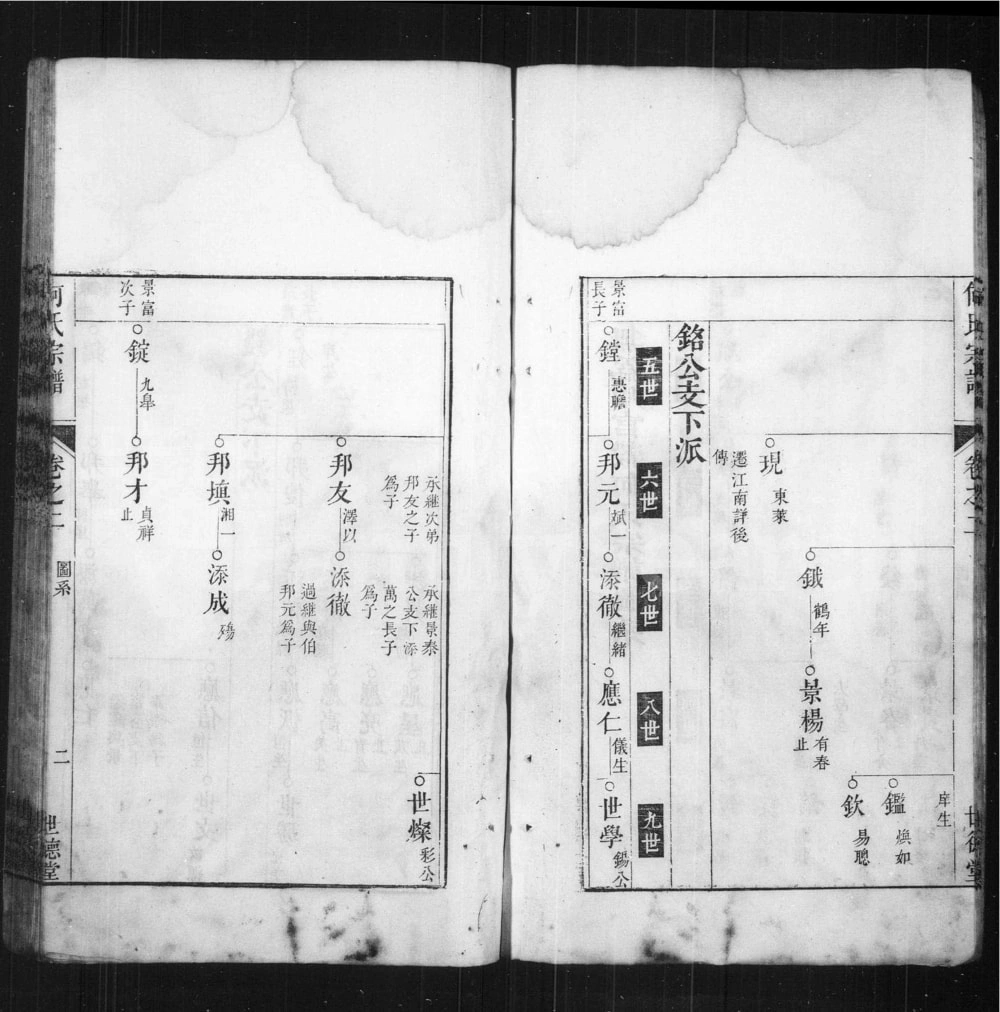 何氏宗譜
卷之二
世德堂
庠生
鑑
煥如
欽
易聰
鐵
鶴年
景楊
有春
止
現
東萊
遷江南詳後
傳
銘公支下派
五世
六世
七世
八世
九世
景富
長子
鏜
惠瞻
邦元
斌一
添徹
繼緒
應仁
儀生
世學
錫公
承繼次弟
邦友之子
爲子
承繼景泰
公支下添
萬之長子
爲子
世燦
彩公
邦友
澤以
添徹
過繼與伯
邦元爲子
邦塡
湘一
添成
殤
景富
次子
錠
九皐
邦才
貞祥
止
何氏宗譜
卷之二
圖系
二
世德堂